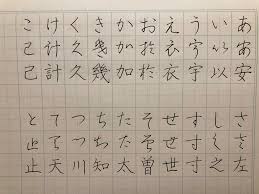 あ安安
い以以
う宇宇
え衣衣
お於於
か加加
き幾幾
く久久
け計計
こ己己
さ左左
し之之
す寸寸
せ世世
そ曽曽
た太太
ち知知
つ川川
て天天
と止止